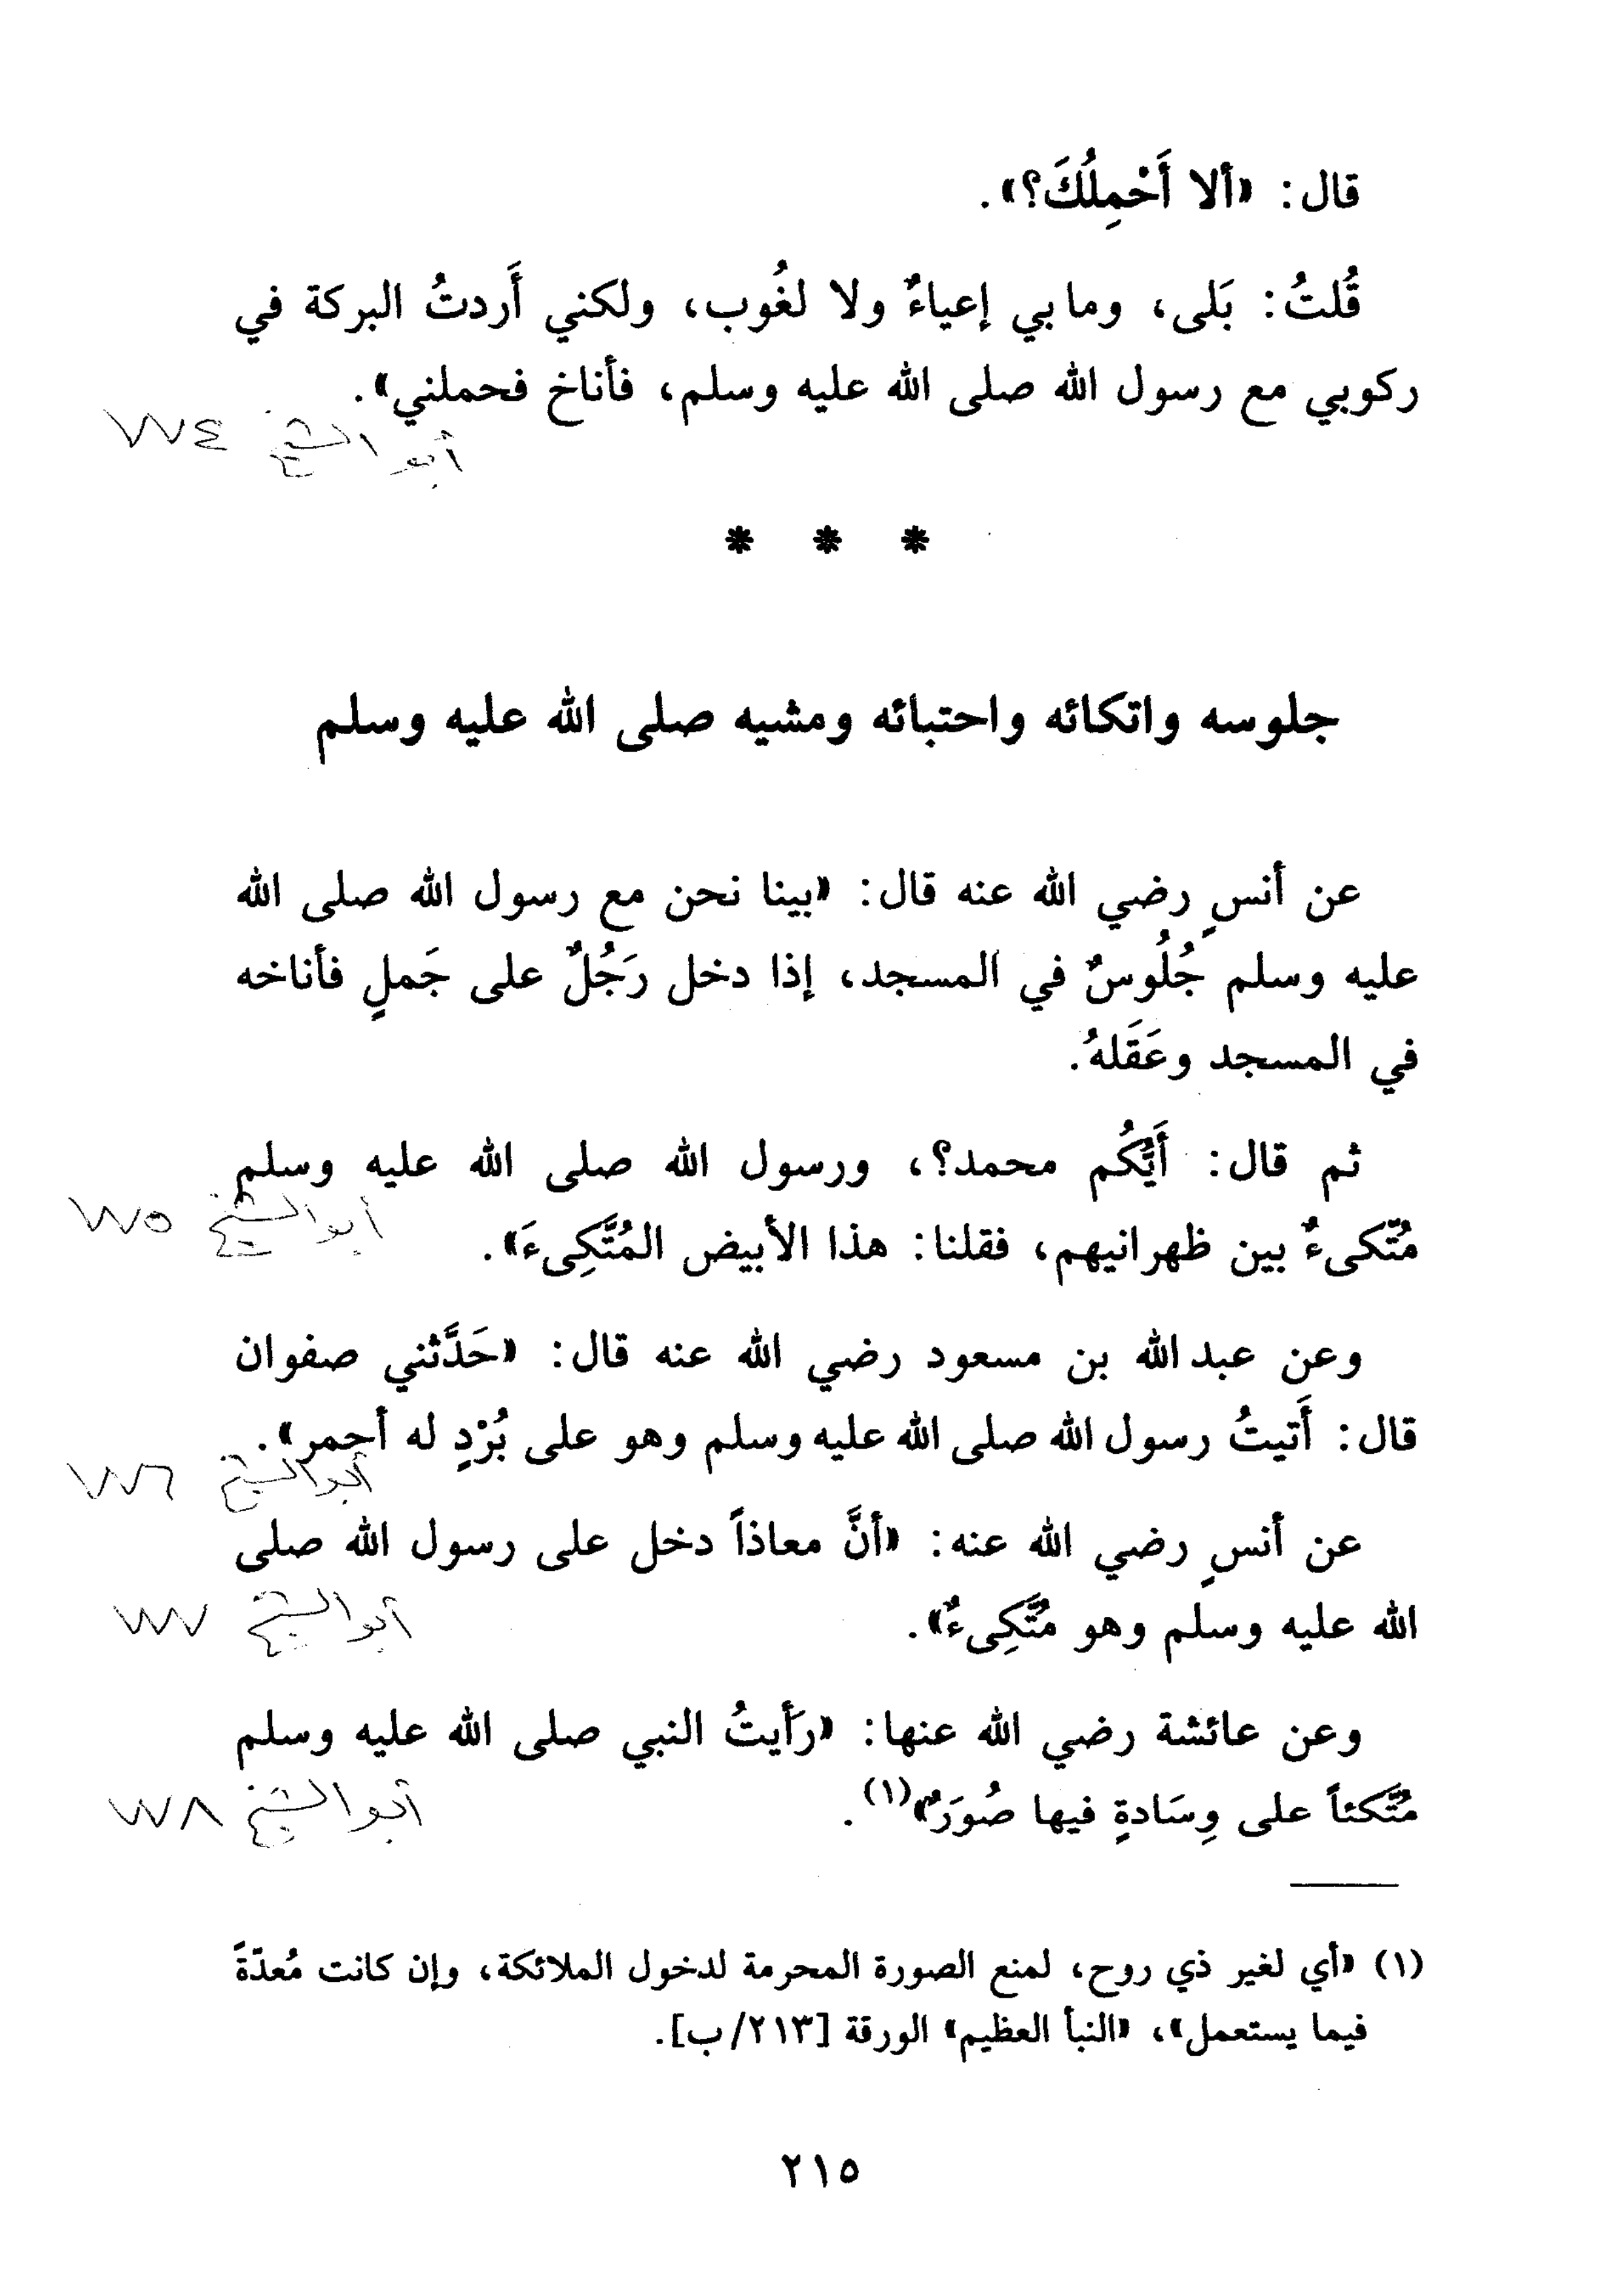 قال: «ألا أَحْمِلُكَ؟».
قُلتُ: بَلى، وما بي إعياءٌ ولا لغُوب، ولكني أَردتُ البركة في
ركوبي مع رسول الله صلى الله عليه وسلم، فأناخ فحملني».
أبو الشيخ ٧٧٤
* * *
جلوسه واتكائه واحتبائه ومشيه صلى الله عليه وسلم
عن أنسٍ رضي الله عنه قال: «بينا نحن مع رسول الله صلى الله
عليه وسلم جُلُوسٌ في المسجد، إذا دخل رَجُلٌ على جَملٍ فأناخه
في المسجد وعَقَلهُ.
ثم قال: أَيُّكُم محمد؟، ورسول الله صلى الله عليه وسلم
أبو الشيخ ٧٧٥
مُتّكىءٌ بين ظهرانيهم، فقلنا: هذا الأبيض المُتَّكِىءَ».
وعن عبد الله بن مسعود رضي الله عنه قال: «حَدَّثني صفوان
قال: أَتيتُ رسول الله صلى الله عليه وسلم وهو على بُرْدٍ له أحمر».
أبو الشيخ ٧٧٦
عن أنسٍ رضي الله عنه: «أنَّ معاذاً دخل على رسول الله صلى
الله عليه وسلم وهو مُتَّكِىءٌ».
أبو الشيخ ٧٧٧
وعن عائشة رضي الله عنها: «رَأيتُ النبي صلى الله عليه وسلم
مُتَّكئاً على وِسَادةٍ فيها صُوَرٌ»(١).
أبو الشيخ ٧٧٨
(١) «أي لغير ذي روح، لمنع الصورة المحرمة لدخول الملائكة، وإن كانت مُعدّةً
فيما يستعمل»، «النبأ العظيم» الورقة [٢١٣/ب].
٢١٥